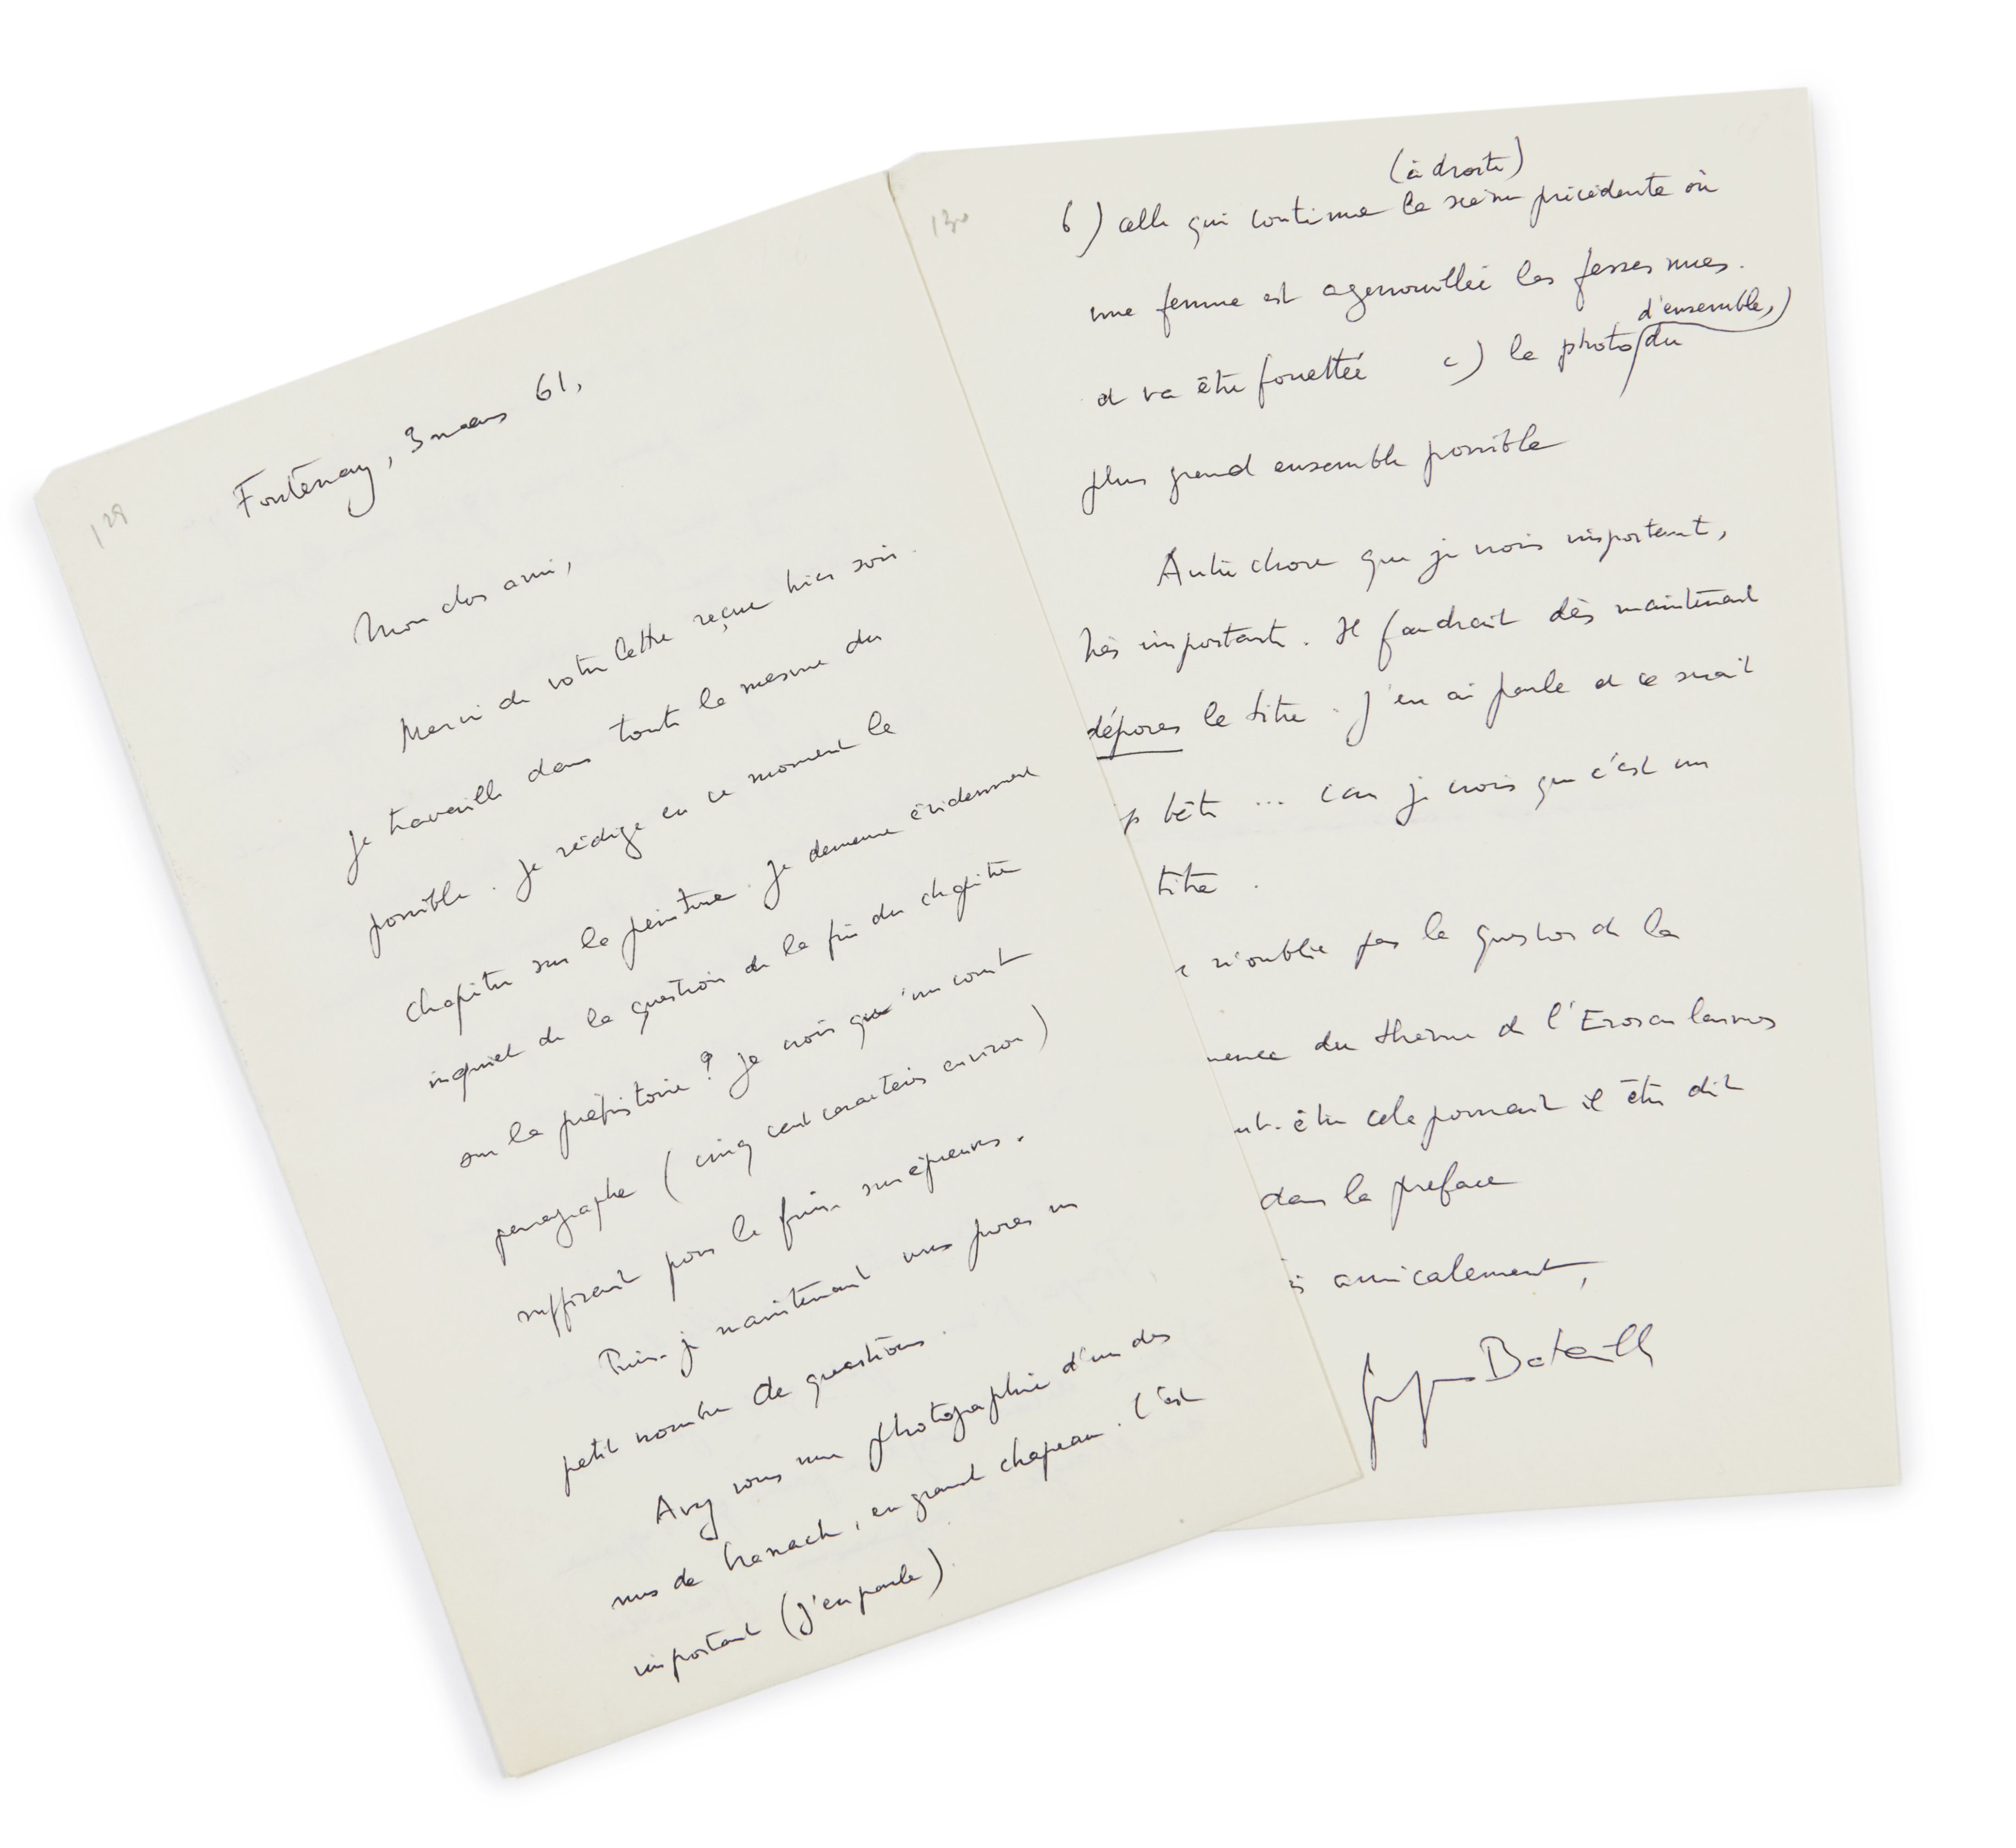 129
Fontenay, 3 mars 61,
Mon cher ami,
Merci de votre lettre reçue hier soir.
Je travaille dans toute la mesure du
possible. Je rédige en ce moment le
chapitre sur la peinture. Je demeure évidemment
inquiet de la question de la fin du chapitre
sur la préhistoire ? Je crois qu'un court
paragraphe (cinq cent caractères environ)
suffirait pour le finir sur épreuves.
Puis-je maintenant vous poser un
petit nombre de questions.
Avez vous une photographie d'un des
nus de Cranach, en grand chapeau. C'est
important (j'en parle)
130
(à droite)
b) celle qui continue la scène précédente où
une femme est agenouillée les fesses nues.
et va être fouettée c) la photo (du
d'ensemble,)
plus grand ensemble possible
Autre chose que je crois important,
très importante. Il faudrait dès maintenant
déposer le titre. J'en ai parlé et ce serait
p bête ... car je crois que c'est un
titre.
n'oublie pas la question de la
du thème de l'Eros en larmes
ut-être cela pourrait il être dit
dans la préface
s amicalement,
Georges Bataille